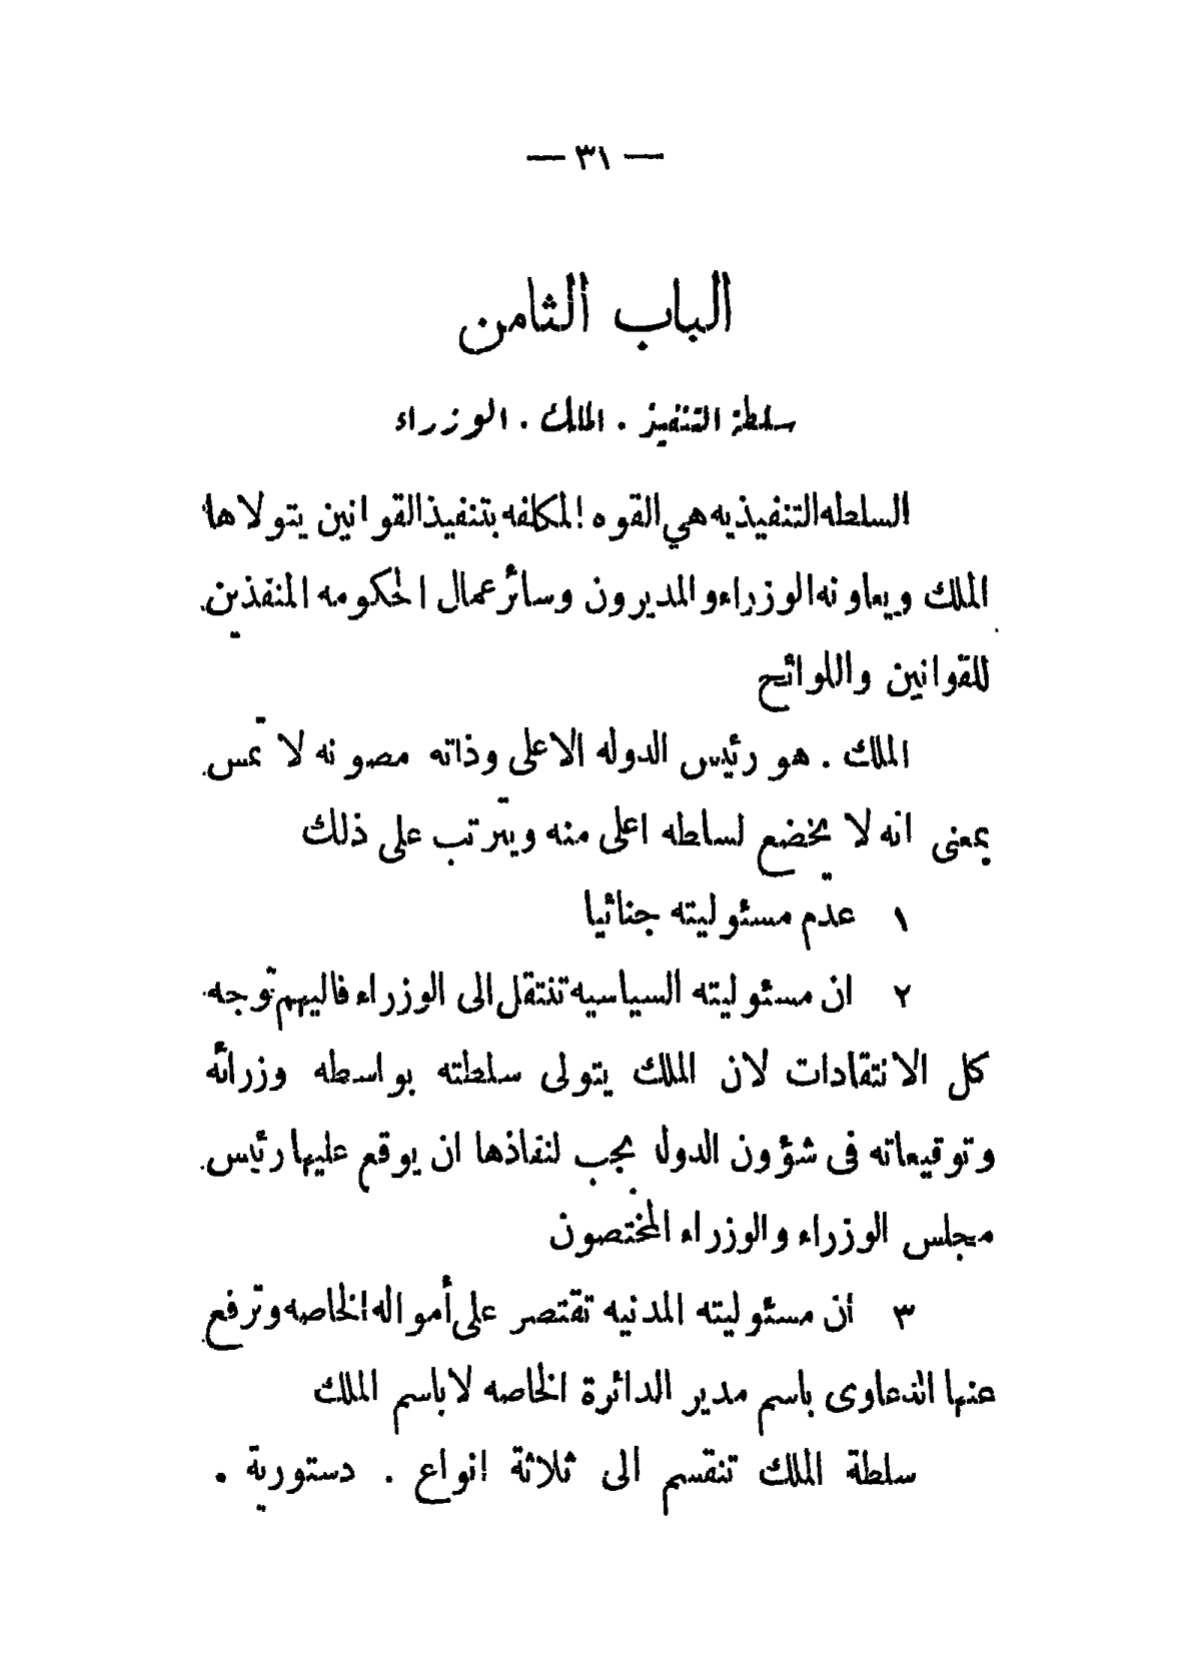 — ٣١ —
الباب الثامن
سلطة التنفيذ . الملك . الوزراء
السلطه التنفيذيه هي القوه المكلفه بتنفيذ القوانين يتولاها
الملك ويعاونه الوزراء والمديرون وسائر عمال الحكومه المنفذين
للقوانين واللوائح
الملك . هو رئيس الدوله الاعلى وذاته مصونه لا تمس
بمعنى انه لا يخضع لساطه اعلى منه ويترتب على ذلك
١ عدم مسئوليته جنائيا
٢ ان مسئوليته السياسيه تنتقل الى الوزراء فاليهم توجه
كل الانتقادات لان الملك يتولى سلطته بواسطه وزرائه
وتوقيعاته فى شؤون الدوله يجب لنفاذها ان يوقع عليها رئيس
مجلس الوزراء والوزراء المختصون
٣ ان مسئوليته المدنيه تقتصر على أمواله الخاصه وترفع
عنها الدعاوى باسم مدير الدائرة الخاصه لا باسم الملك
سلطة الملك تنقسم الى ثلاثة انواع . دستورية .